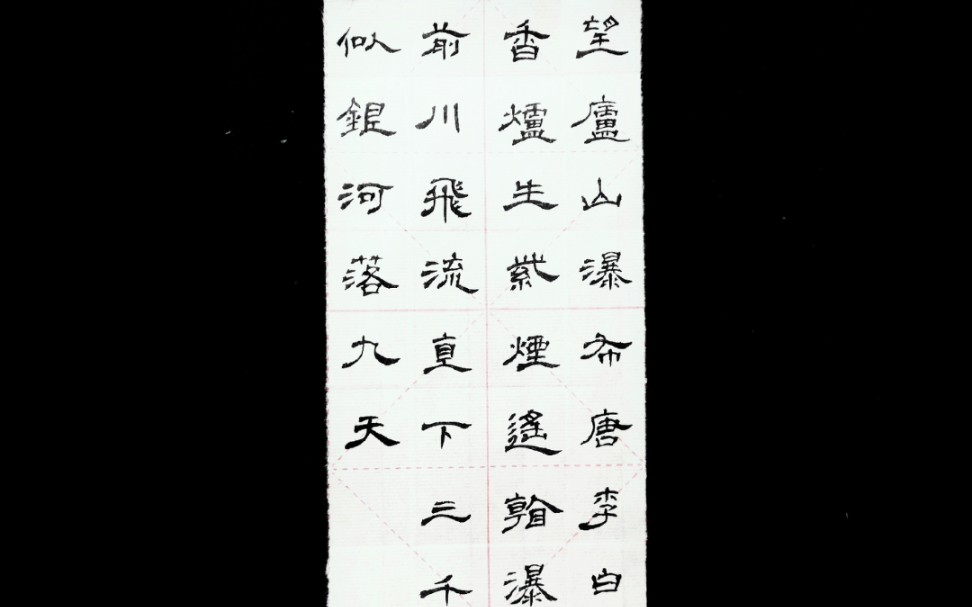 望廬山瀑布唐李白
香爐生紫煙遙看瀑
前川飛流直下三千
似銀河落九天